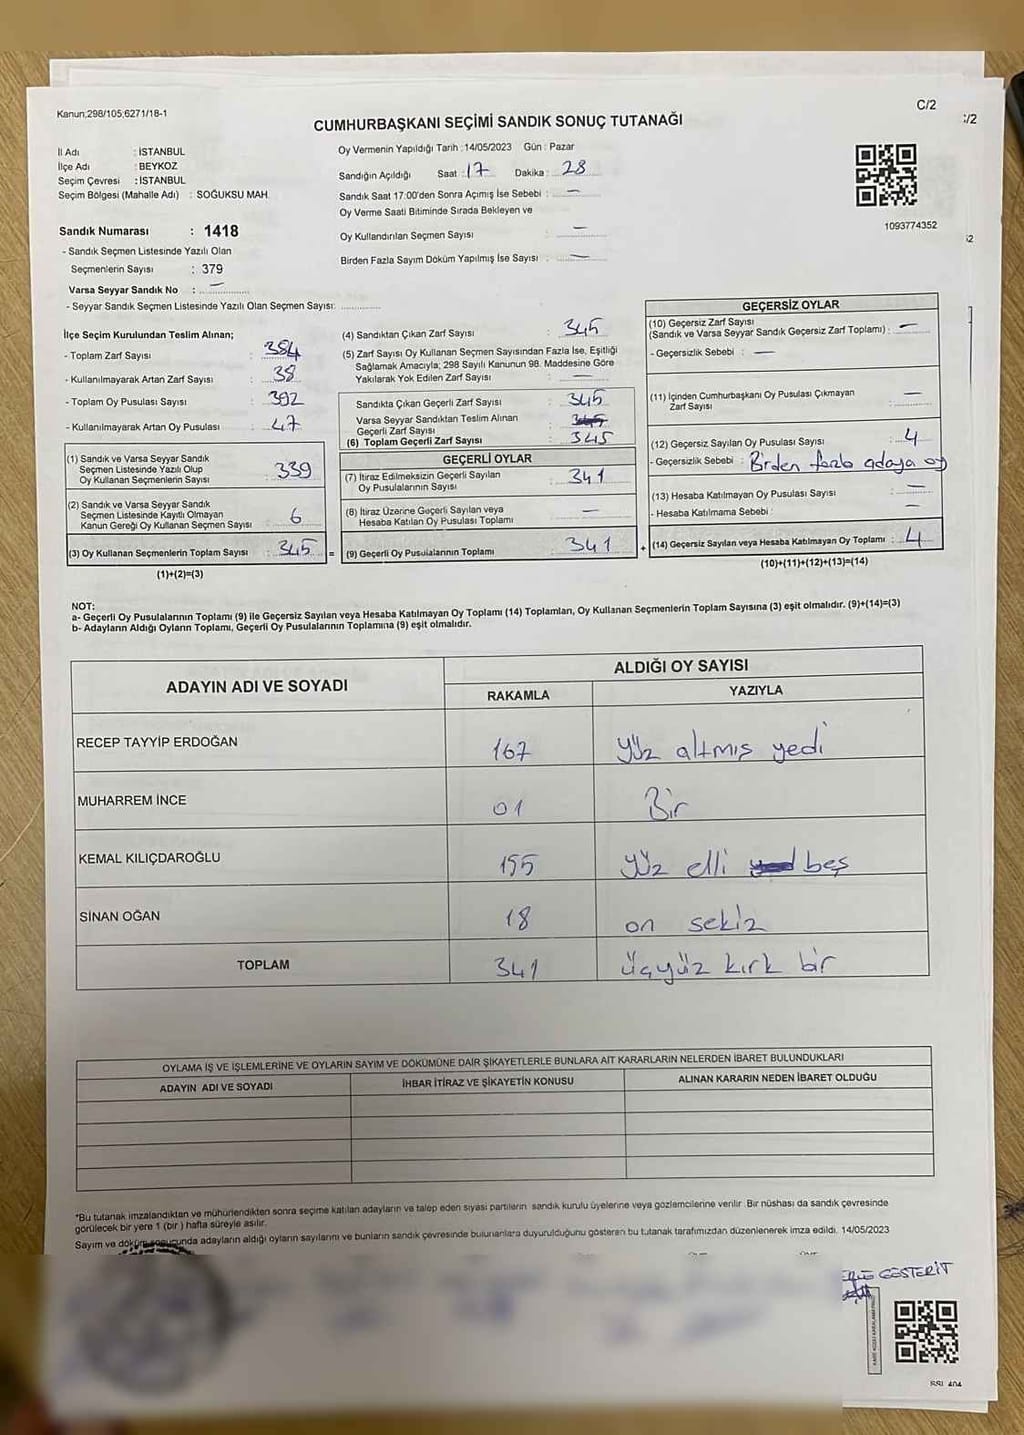 Kanun;298/105;6271/18-1
C/2
:/2
CUMHURBAŞKANI SEÇİMİ SANDIK SONUÇ TUTANAĞI
İl Adı : İSTANBUL
İlçe Adı : BEYKOZ
Seçim Çevresi : İSTANBUL
Seçim Bölgesi (Mahalle Adı) : SOĞUKSU MAH.
Sandık Numarası : 1418
- Sandık Seçmen Listesinde Yazılı Olan
Seçmenlerin Sayısı : 379
Varsa Seyyar Sandık No : —
- Seyyar Sandık Seçmen Listesinde Yazılı Olan Seçmen Sayısı:
Oy Vermenin Yapıldığı Tarih :14/05/2023 Gün : Pazar
Sandığın Açıldığı Saat : 17 Dakika : 28
Sandık Saat 17:00'den Sonra Açımış İse Sebebi : —
Oy Verme Saati Bitiminde Sırada Bekleyen ve
Oy Kullandırılan Seçmen Sayısı : —
Birden Fazla Sayım Döküm Yapılmış İse Sayısı : —
1093774352
2
İlçe Seçim Kurulundan Teslim Alınan;
- Toplam Zarf Sayısı : 384
- Kullanılmayarak Artan Zarf Sayısı : 38
- Toplam Oy Pusulası Sayısı : 392
- Kullanılmayarak Artan Oy Pusulası : 47
(1) Sandık ve Varsa Seyyar Sandık
Seçmen Listesinde Yazılı Olup
Oy Kullanan Seçmenlerin Sayısı : 339
(2) Sandık ve Varsa Seyyar Sandık
Seçmen Listesinde Kayıtlı Olmayan
Kanun Gereği Oy Kullanan Seçmen Sayısı : 6
(3) Oy Kullanan Seçmenlerin Toplam Sayısı : 345 =
(1)+(2)=(3)
(4) Sandıktan Çıkan Zarf Sayısı : 345
(5) Zarf Sayısı Oy Kullanan Seçmen Sayısından Fazla İse, Eşitliği
Sağlamak Amacıyla; 298 Sayılı Kanunun 98. Maddesine Göre
Yakılarak Yok Edilen Zarf Sayısı : —
Sandıkta Çıkan Geçerli Zarf Sayısı : 345
Varsa Seyyar Sandıktan Teslim Alınan
Geçerli Zarf Sayısı
(6) Toplam Geçerli Zarf Sayısı : 345
GEÇERLİ OYLAR
(7) İtiraz Edilmeksizin Geçerli Sayılan
Oy Pusulalarının Sayısı : 341
(8) İtiraz Üzerine Geçerli Sayılan veya
Hesaba Katılan Oy Pusulası Toplamı : —
(9) Geçerli Oy Pusulalarının Toplamı : 341 +
GEÇERSİZ OYLAR
(10) Geçersiz Zarf Sayısı
(Sandık ve Varsa Seyyar Sandık Geçersiz Zarf Toplamı) : —
- Geçersizlik Sebebi : —
(11) İçinden Cumhurbaşkanı Oy Pusulası Çıkmayan
Zarf Sayısı : —
(12) Geçersiz Sayılan Oy Pusulası Sayısı : 4
- Geçersizlik Sebebi : Birden fazla adaya oy
(13) Hesaba Katılmayan Oy Pusulası Sayısı : —
- Hesaba Katılmama Sebebi : —
(14) Geçersiz Sayılan veya Hesaba Katılmayan Oy Toplamı : 4
(10)+(11)+(12)+(13)=(14)
NOT:
a- Geçerli Oy Pusulalarının Toplamı (9) ile Geçersiz Sayılan veya Hesaba Katılmayan Oy Toplamı (14) Toplamları, Oy Kullanan Seçmenlerin Toplam Sayısına (3) eşit olmalıdır. (9)+(14)=(3)
b- Adayların Aldığı Oyların Toplamı, Geçerli Oy Pusulalarının Toplamına (9) eşit olmalıdır.
ADAYIN ADI VE SOYADI ALDIĞI OY SAYISI
RAKAMLA YAZIYLA
RECEP TAYYİP ERDOĞAN 167 yüz altmış yedi
MUHARREM İNCE 01 Bir
KEMAL KILIÇDAROĞLU 155 yüz elli beş
SİNAN OĞAN 18 on sekiz
TOPLAM 341 üçyüz kırk bir
OYLAMA İŞ VE İŞLEMLERİNE VE OYLARIN SAYIM VE DÖKÜMÜNE DAİR ŞİKAYETLERLE BUNLARA AİT KARARLARIN NELERDEN İBARET BULUNDUKLARI
ADAYIN ADI VE SOYADI İHBAR İTİRAZ VE ŞİKAYETİN KONUSU ALINAN KARARIN NEDEN İBARET OLDUĞU
*Bu tutanak imzalandıktan ve mühürlendikten sonra seçime katılan adayların ve talep eden siyasi partilerin sandık kurulu üyelerine veya gözlemcilerine verilir. Bir nüshası da sandık çevresinde
görülecek bir yere 1 (bir ) hafta süreyle asılır.
Sayım ve döküm sonucunda adayların aldığı oyların sayılarını ve bunların sandık çevresinde bulunanlara duyurulduğunu gösteren bu tutanak tarafımızdan düzenlenerek imza edildi. 14/05/2023
GÖSTERİT